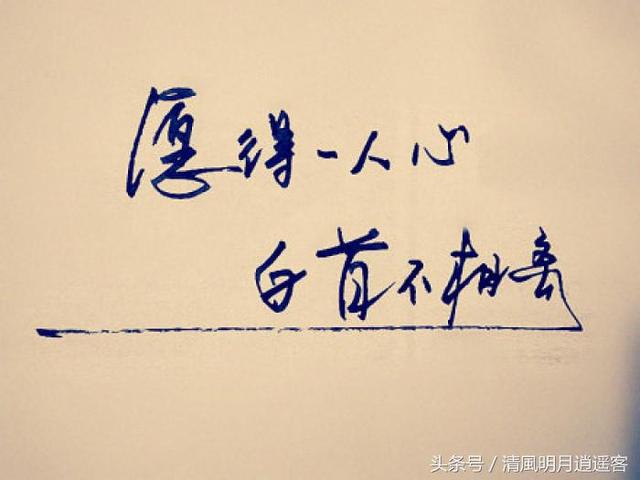 愿得一人心
白首不相离
头条号 / 清風明月逍遥客